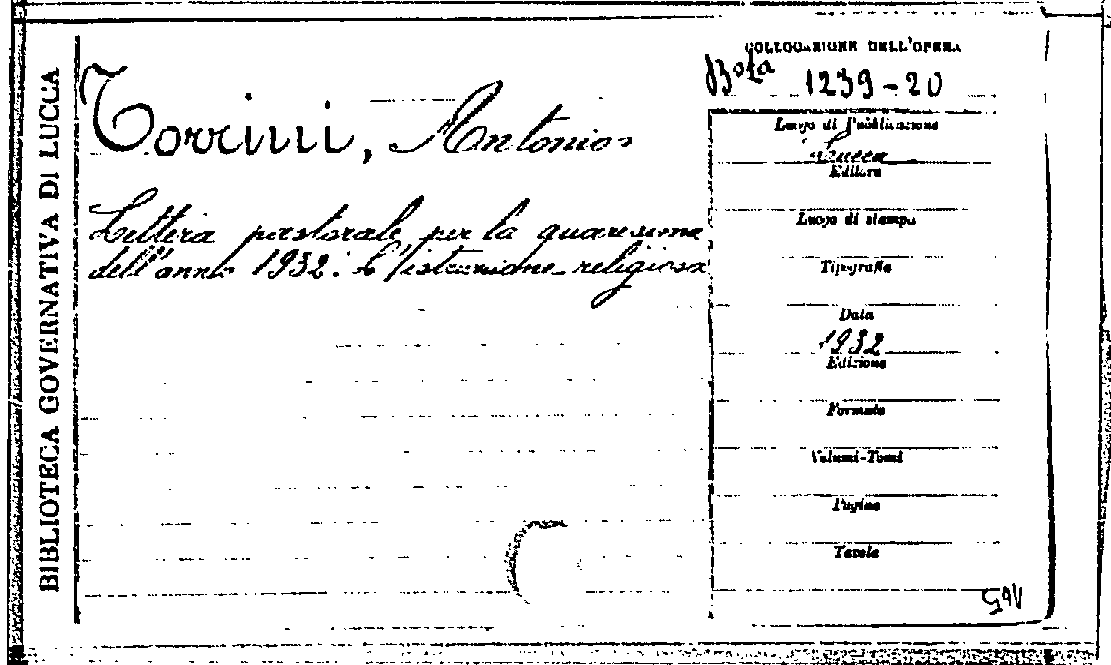 BIBLIOTECA GOVERNATIVA DI LUCCA
Torrini, Antonio
Lettera pastorale per la quaresima
dell'anno 1932: L'istruzione religiosa
COLLOCAZIONE DELL'OPERA
1239-20
Luogo di Pubblicazione
Lucca
Editore
Luogo di stampa
Tipografia
Data
1932
Edizione
Formato
Volumi-Tomi
Pagine
Tavole